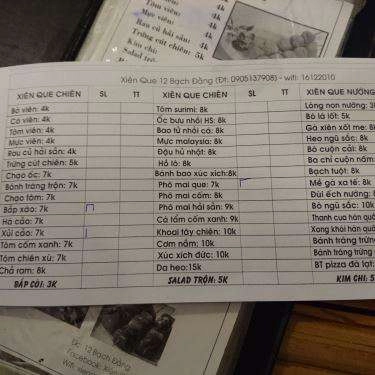 Tôm viên: 4k
Mực viên: 4k
Rau củ hải sản: 4k
Trứng cút chiên: 5k
Kim chi:
Salad trộn:
4k
4k
Xiên Que 12 Bạch Đằng (Đt: 0905137908) - wifi: 16122010
XIÊN QUE CHIÊN SL TT XIÊN QUE CHIÊN SL TT XIÊN QUE NƯỚNG
Bò viên: 4k Tôm surimi: 8k Lòng non nướng:
Cá viên: 4k Ốc bươu nhồi HS: 8k Bò lá lốt: 5k
Tôm viên: 4k Bao tử nhồi cá: 8k Gà xiên xốt me: 8k
Mực viên: 4k Mực malaysia: 8k Heo ngũ sắc: 8k
Rau củ hải sản: 4k Đậu hủ nhật: 8k Bò cuộn cải: 8k
Trứng cút chiên: 5k Hồ lô: 8k Ba chỉ cuộn nấm:
Chạo ốc: 7k Bánh bao xúc xích:8k Bạch tuột: 8k
Bánh tráng trộn: 7k Phô mai que: 7k Mề gà xa tế: 8k
Chạo tôm: 7k Phô mai cốm: 8k Đùi ếch nướng:
Bắp xào: 7k Phô mai hải sản: 9k Bò ngũ sắc: 10k
Há cảo: 7k Cá tẩm cốm xanh: 9k Thanh cua hàn
Xủi cảo: 7k Khoai tây chiên: 10k Xong khói hàn
Tôm cốm xanh: 7k Cơm nắm: 10k Bánh tráng trứng
Tôm chiên xù: 7k Xúc xích đức: 10k Bánh tráng trứng
Chả ram: 8k Da heo:15k BT pizza đà lạt:
BẮP CÒI: 3K SALAD TRỘN: 5K KIM CHI: 5
Đc: 12 Bạch Đằng
Facebook: